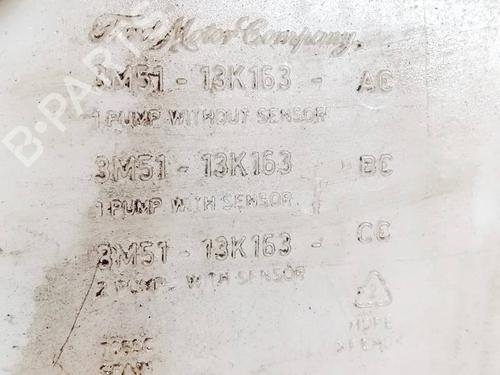 Ford Motor Company
3M51 - 13K163 - AC
1 PUMP WITHOUT SENSOR
3M51 - 13K163 BC
1 PUMP WITH SENSOR
3M51 - 13K163 - CC
2 PUMP WITH SENSOR
B-PARTS
HDPE